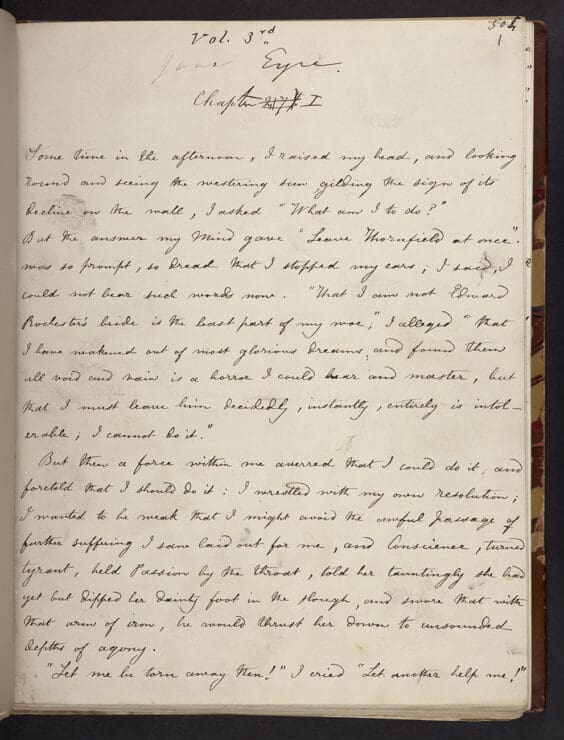 505
1
Vol. 3rd
Jane Eyre.
Chapter I
Some time in the afternoon, I raised my head, and looking
round and seeing the westering sun gilding the sign of its
decline on the wall, I asked "What am I to do?"
But the answer my Mind gave "Leave Thornfield at once".
was so prompt, so dread that I stopped my ears; I said, I
could not bear such words now. "That I am not Edward
Rochester's bride is the least part of my woe," I alleged "that
I have wakened out of most glorious dreams and found them
all void and vain is a horror I could bear and master, but
that I must leave him decidedly, instantly, entirely is intol-
erable; I cannot do it."
But then a force within me averred that I could do it, and
foretold that I should do it: I wrestled with my own resolution;
I wanted to be weak that I might avoid the awful passage of
further suffering I saw laid out for me, and Conscience, turned
tyrant, held Passion by the throat, told her tauntingly she had
yet but dipped her dainty foot in the slough, and swore that with
that arm of iron, he would thrust her down to unsounded
depths of agony.
"Let me be torn away then!" I cried "Let another help me!"